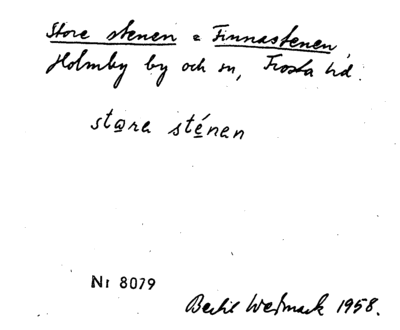 Store stenen = Finnastenen,
Holmby by och sn, Frosta hd.
stɷra sténɘn
Nr 8079
Bertil Wedmark 1958.